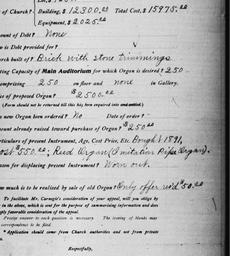 of Church? Building, $12300.00 Total Cost, $15975.22
Equipment, $2025.00
ount of Debt? None
is Debt provided for?
urch built of? Brick with stone trimmings
ting Capacity of Main Auditorium for which Organ is desired? 250
omprising 250 on floor and none in Gallery.
ice of proposed Organ? $2500.00
(Form should not be returned till this has been inquired into and settled.)
new Organ been ordered? No Date of order?
ount already raised toward purchase of Organ? $250.00
articulars of present Instrument, Age, Cost Price, Etc. Bought 1891,
Cost $550.00; Reed Organ (Imitation Pipe Organ).
ason for displacing present Instrument? Worn out.
w much is to be realized by sale of old Organ? Only offer rec'd $50.00
To facilitate Mr. Carnegie's consideration of your appeal, will you oblige by
in the above, which is sent for the purpose of summarizing information and does
ply favorable consideration of the appeal.
Precise answer to each question is necessary. The testing of blanks may
correspondence to be filed.
Application should come from Church authorities and not from private
Respectfully,